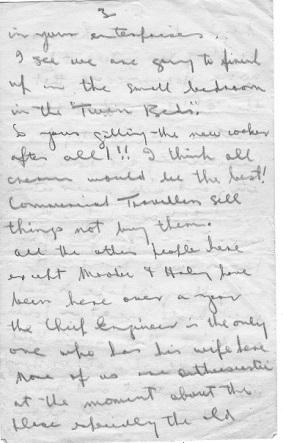 3
in your enterprises..
I see we are going to finish
up in the small bedroom
in the "Twin Beds".
So your getting the new cooker
after all!!! I think all
cream would be the best!
Commercial Travellers sell
things not buy them.
All the other people here
except Moodie & Haley have
been here over a year
the Chief Engineer is the only
one who has his wife here
None of us are enthusiastic
at the moment about the
place especially the old